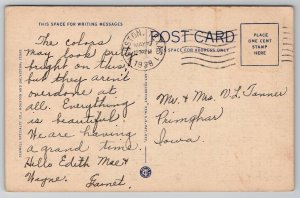 THIS SPACE FOR WRITING MESSAGES
POST CARD
THIS SPACE FOR ADDRESS ONLY
PLACE
ONE CENT
STAMP
HERE
1938
The Colors
may look pretty
bright on this,
but they aren't
overdone at
all. Everything
is beautiful.
We are having
a grand time.
Hello Edith Mae &
Wayne. Garnet.
Mr. & Mrs. V L Tanner
Primghar
Iowa.